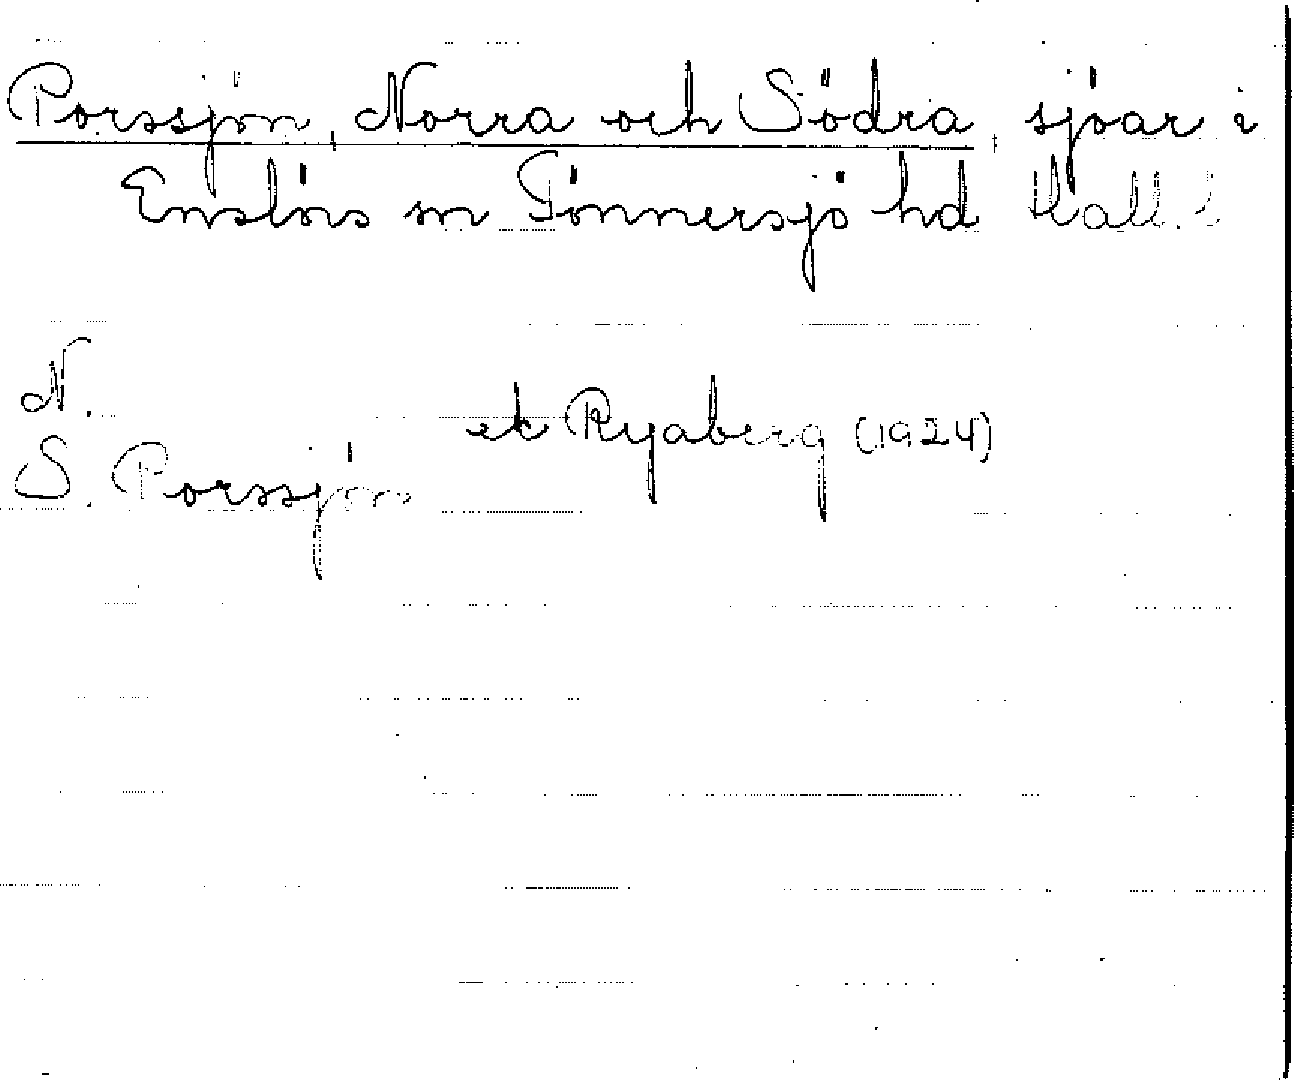 Porssjön, Norra och Södra, sjöar i
Enslövs sn Tönnersjö hd Hall. l
N.
ek Ryaberg (1924)
S. Porssjön